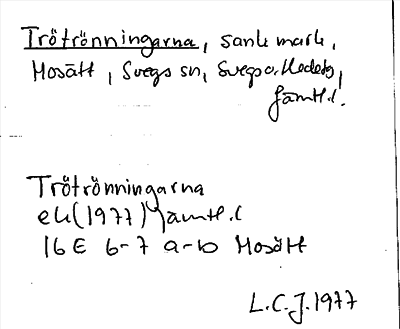 Trötrönningarna, sank mark,
Mosätt, Svegs sn, Svegs o. Hedebg,
Jämtl.l.
Trötrönningarna
ek (1977) Jämtl.l
16 E 6-7 a-b Mosätt
L.C.J. 1977